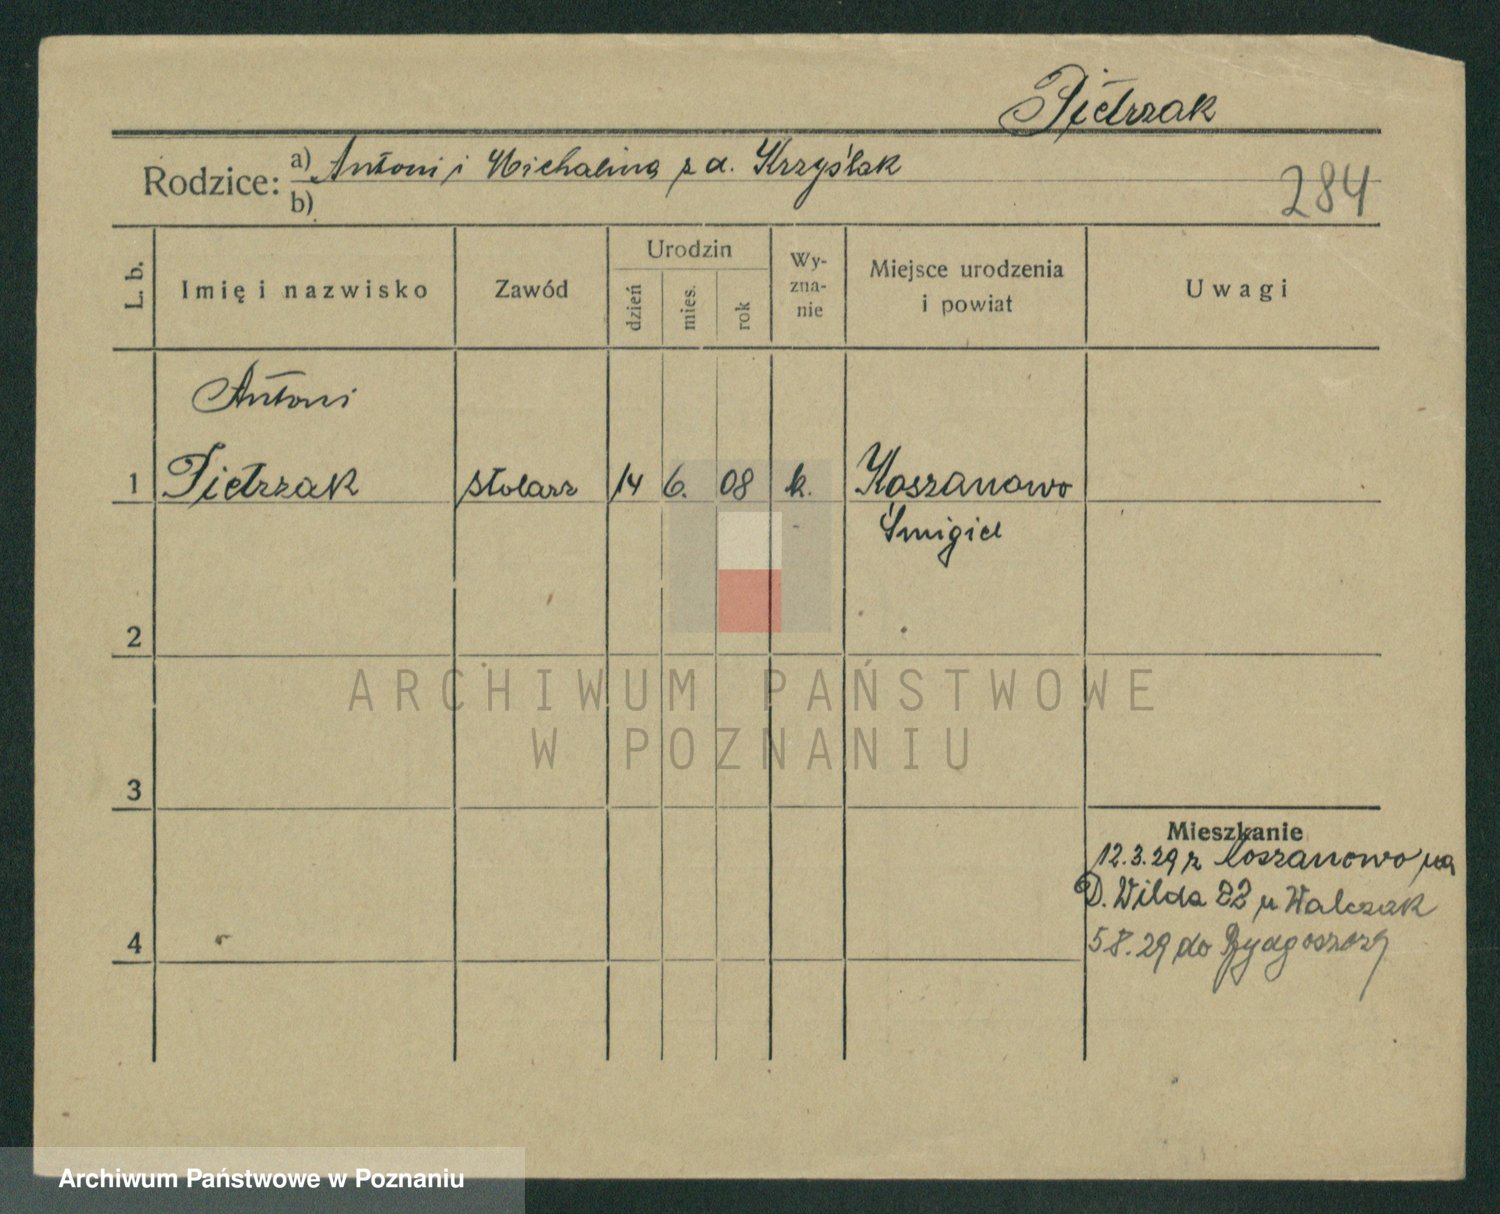 Pietrzak
Rodzice: a) Antoni i Michalina z d. Krzyślak
b)
284
L. b.
Imię i nazwisko
Zawód
Urodzin
dzień
mies.
rok
Wy-
zna-
nie
Miejsce urodzenia
i powiat
Uwagi
Antoni
1 Pietrzak stolarz 14 6. 08 k. Koszanowo
Śmigiel
2
ARCHIWUM PAŃSTWOWE
W POZNANIU
3
Mieszkanie
12.3.29 z Koszanowo na
D. Wilda 22 u Walczak
4
5 8. 29 do Bydgoszczy
Archiwum Państwowe w Poznaniu